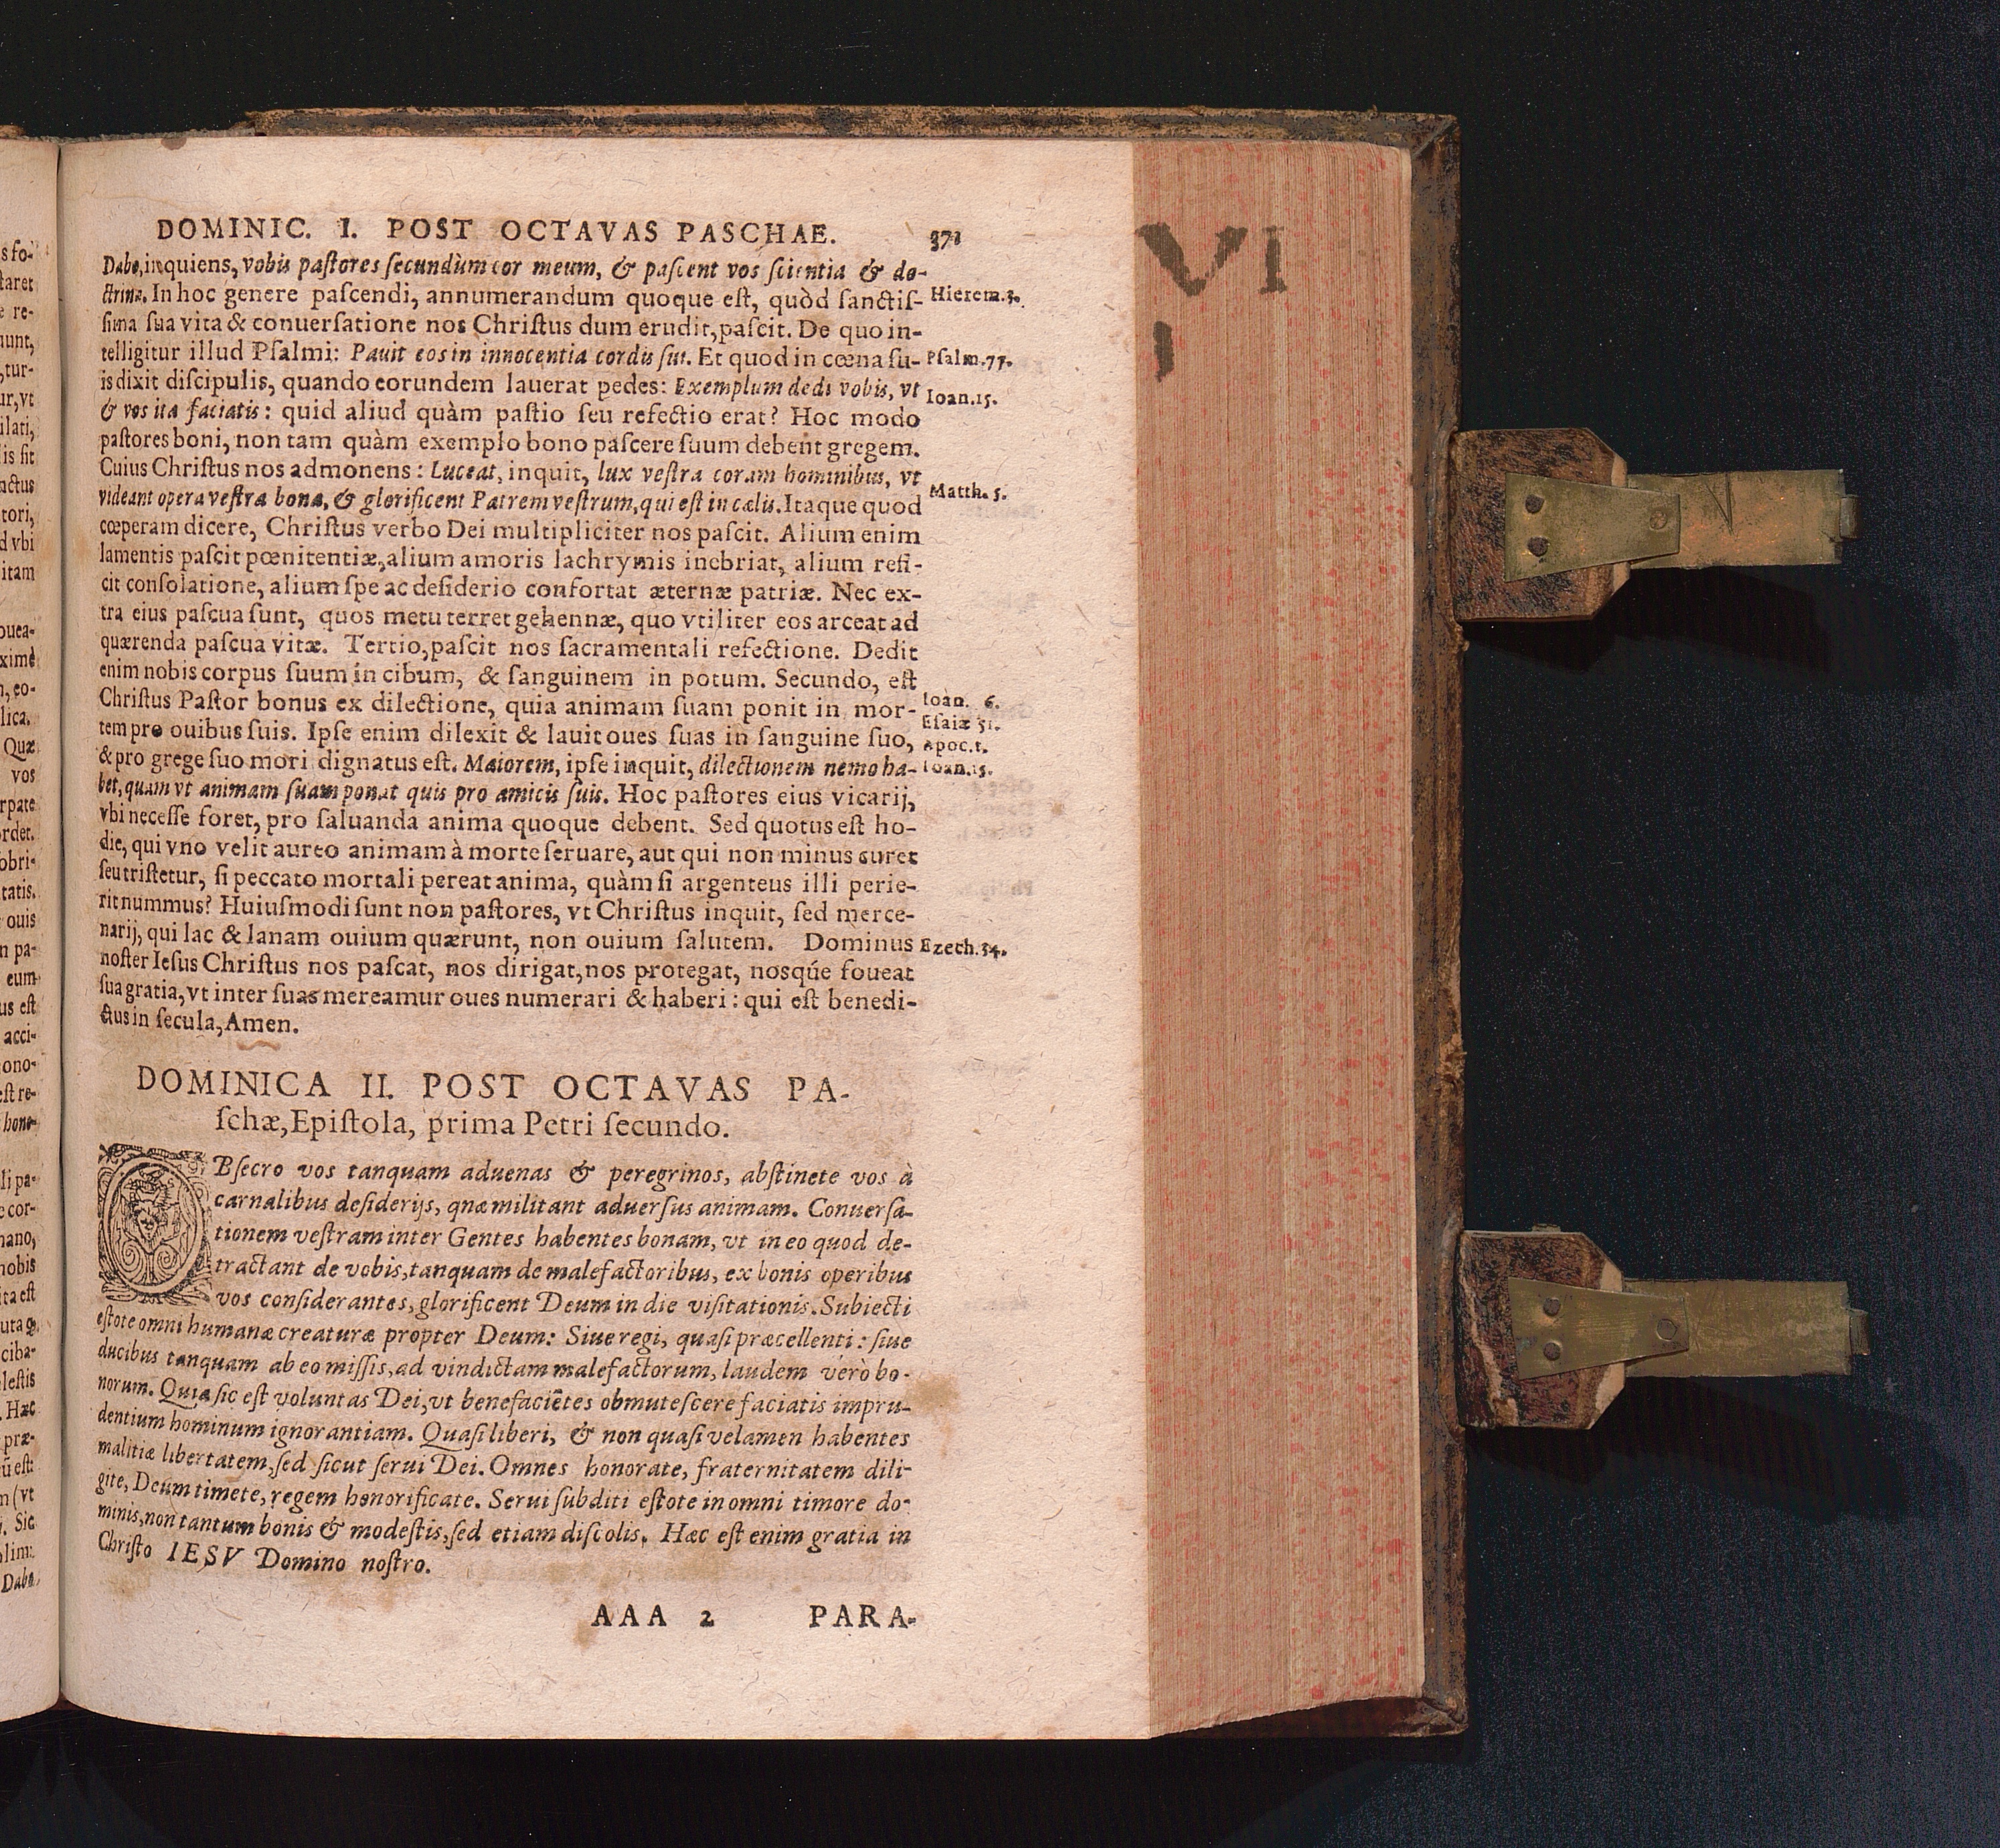 DOMINIC. I. POST OCTAVAS PASCHAE. 371
Dabo, inquiens, vobis paſtores ſecundùm cor meum, & paſcent vos ſcientia & do-
ctrina. In hoc genere paſcendi, annumerandum quoque eſt, quòd ſanctiſ- Hierem.3.
ſima ſua vita & conuerſatione nos Chriſtus dum erudit, paſcit. De quo in-
telligitur illud Pſalmi: Pauit eos in innocentia cordis ſui. Et quod in cœna ſu- Pſalm.77.
is dixit diſcipulis, quando eorundem lauerat pedes: Exemplum dedi vobis, vt
& vos ita faciatis: quid aliud quàm paſtio ſeu refectio erat? Hoc modo Ioan.15.
paſtores boni, non tam quàm exemplo bono paſcere ſuum debent gregem.
Cuius Chriſtus nos admonens: Luceat, inquit, lux veſtra coram hominibus, vt
videant opera veſtra bona, & glorificent Patrem veſtrum, qui eſt in cælis. Itaque quod Matth.5.
cœperam dicere, Chriſtus verbo Dei multipliciter nos paſcit. Alium enim
lamentis paſcit pœnitentiæ, alium amoris lachrymis inebriat, alium refi-
cit conſolatione, alium ſpe ac deſiderio confortat æternæ patriæ. Nec ex-
tra eius paſcua ſunt, quos metu terret gehennæ, quo vtiliter eos arceat ad
quærenda paſcua vitæ. Tertio, paſcit nos ſacramentali refectione. Dedit
enim nobis corpus ſuum in cibum, & ſanguinem in potum. Secundo, eſt
Chriſtus Paſtor bonus ex dilectione, quia animam ſuam ponit in mor- Ioan. 6.
tem pro ouibus ſuis. Ipſe enim dilexit & lauit oues ſuas in ſanguine ſuo, Eſaiæ 51.
Apoc.1.
& pro grege ſuo mori dignatus eſt. Maiorem, ipſe inquit, dilectionem nemo ha- Ioan.15.
bet, quam vt animam ſuam ponat quis pro amicis ſuis. Hoc paſtores eius vicarij,
vbi neceſſe foret, pro ſaluanda anima quoque debent. Sed quotus eſt ho-
die, qui vno velit aureo animam à morte ſeruare, aut qui non minus curet
ſeu triſtetur, ſi peccato mortali pereat anima, quàm ſi argenteus illi perie-
rit nummus? Huiuſmodi ſunt non paſtores, vt Chriſtus inquit, ſed merce-
narij, qui lac & lanam ouium quærunt, non ouium ſalutem. Dominus Ezech.34.
noſter Ieſus Chriſtus nos paſcat, nos dirigat, nos protegat, nosqúe foueat
ſua gratia, vt inter ſuas mereamur oues numerari & haberi: qui eſt benedi-
ctus in ſecula, Amen.
DOMINICA II. POST OCTAVAS PA-
ſchæ, Epiſtola, prima Petri ſecundo.
OBſecro vos tanquam aduenas & peregrinos, abſtinete vos à
carnalibus deſiderijs, quæ militant aduerſus animam. Conuerſa-
tionem veſtram inter Gentes habentes bonam, vt in eo quod de-
tractant de vobis, tanquam de malefactoribus, ex bonis operibus
vos conſiderantes, glorificent Deum in die viſitationis. Subiecti
eſtote omni humanæ creaturæ propter Deum: Siue regi, quaſi præcellenti: ſiue
ducibus tanquam ab eo miſſis, ad vindictam malefactorum, laudem verò bo-
norum. Quia ſic eſt voluntas Dei, vt benefaciẽtes obmuteſcere faciatis impru-
dentium hominum ignorantiam. Quaſi liberi, & non quaſi velamen habentes
malitiæ libertatem, ſed ſicut ſerui Dei. Omnes honorate, fraternitatem dili-
gite, Deum timete, regem honorificate. Serui ſubditi eſtote in omni timore do-
minis, non tantum bonis & modeſtis, ſed etiam diſcolis. Hæc eſt enim gratia in
Chriſto IESV Domino noſtro.
AAA 2 PARA-
VI
I